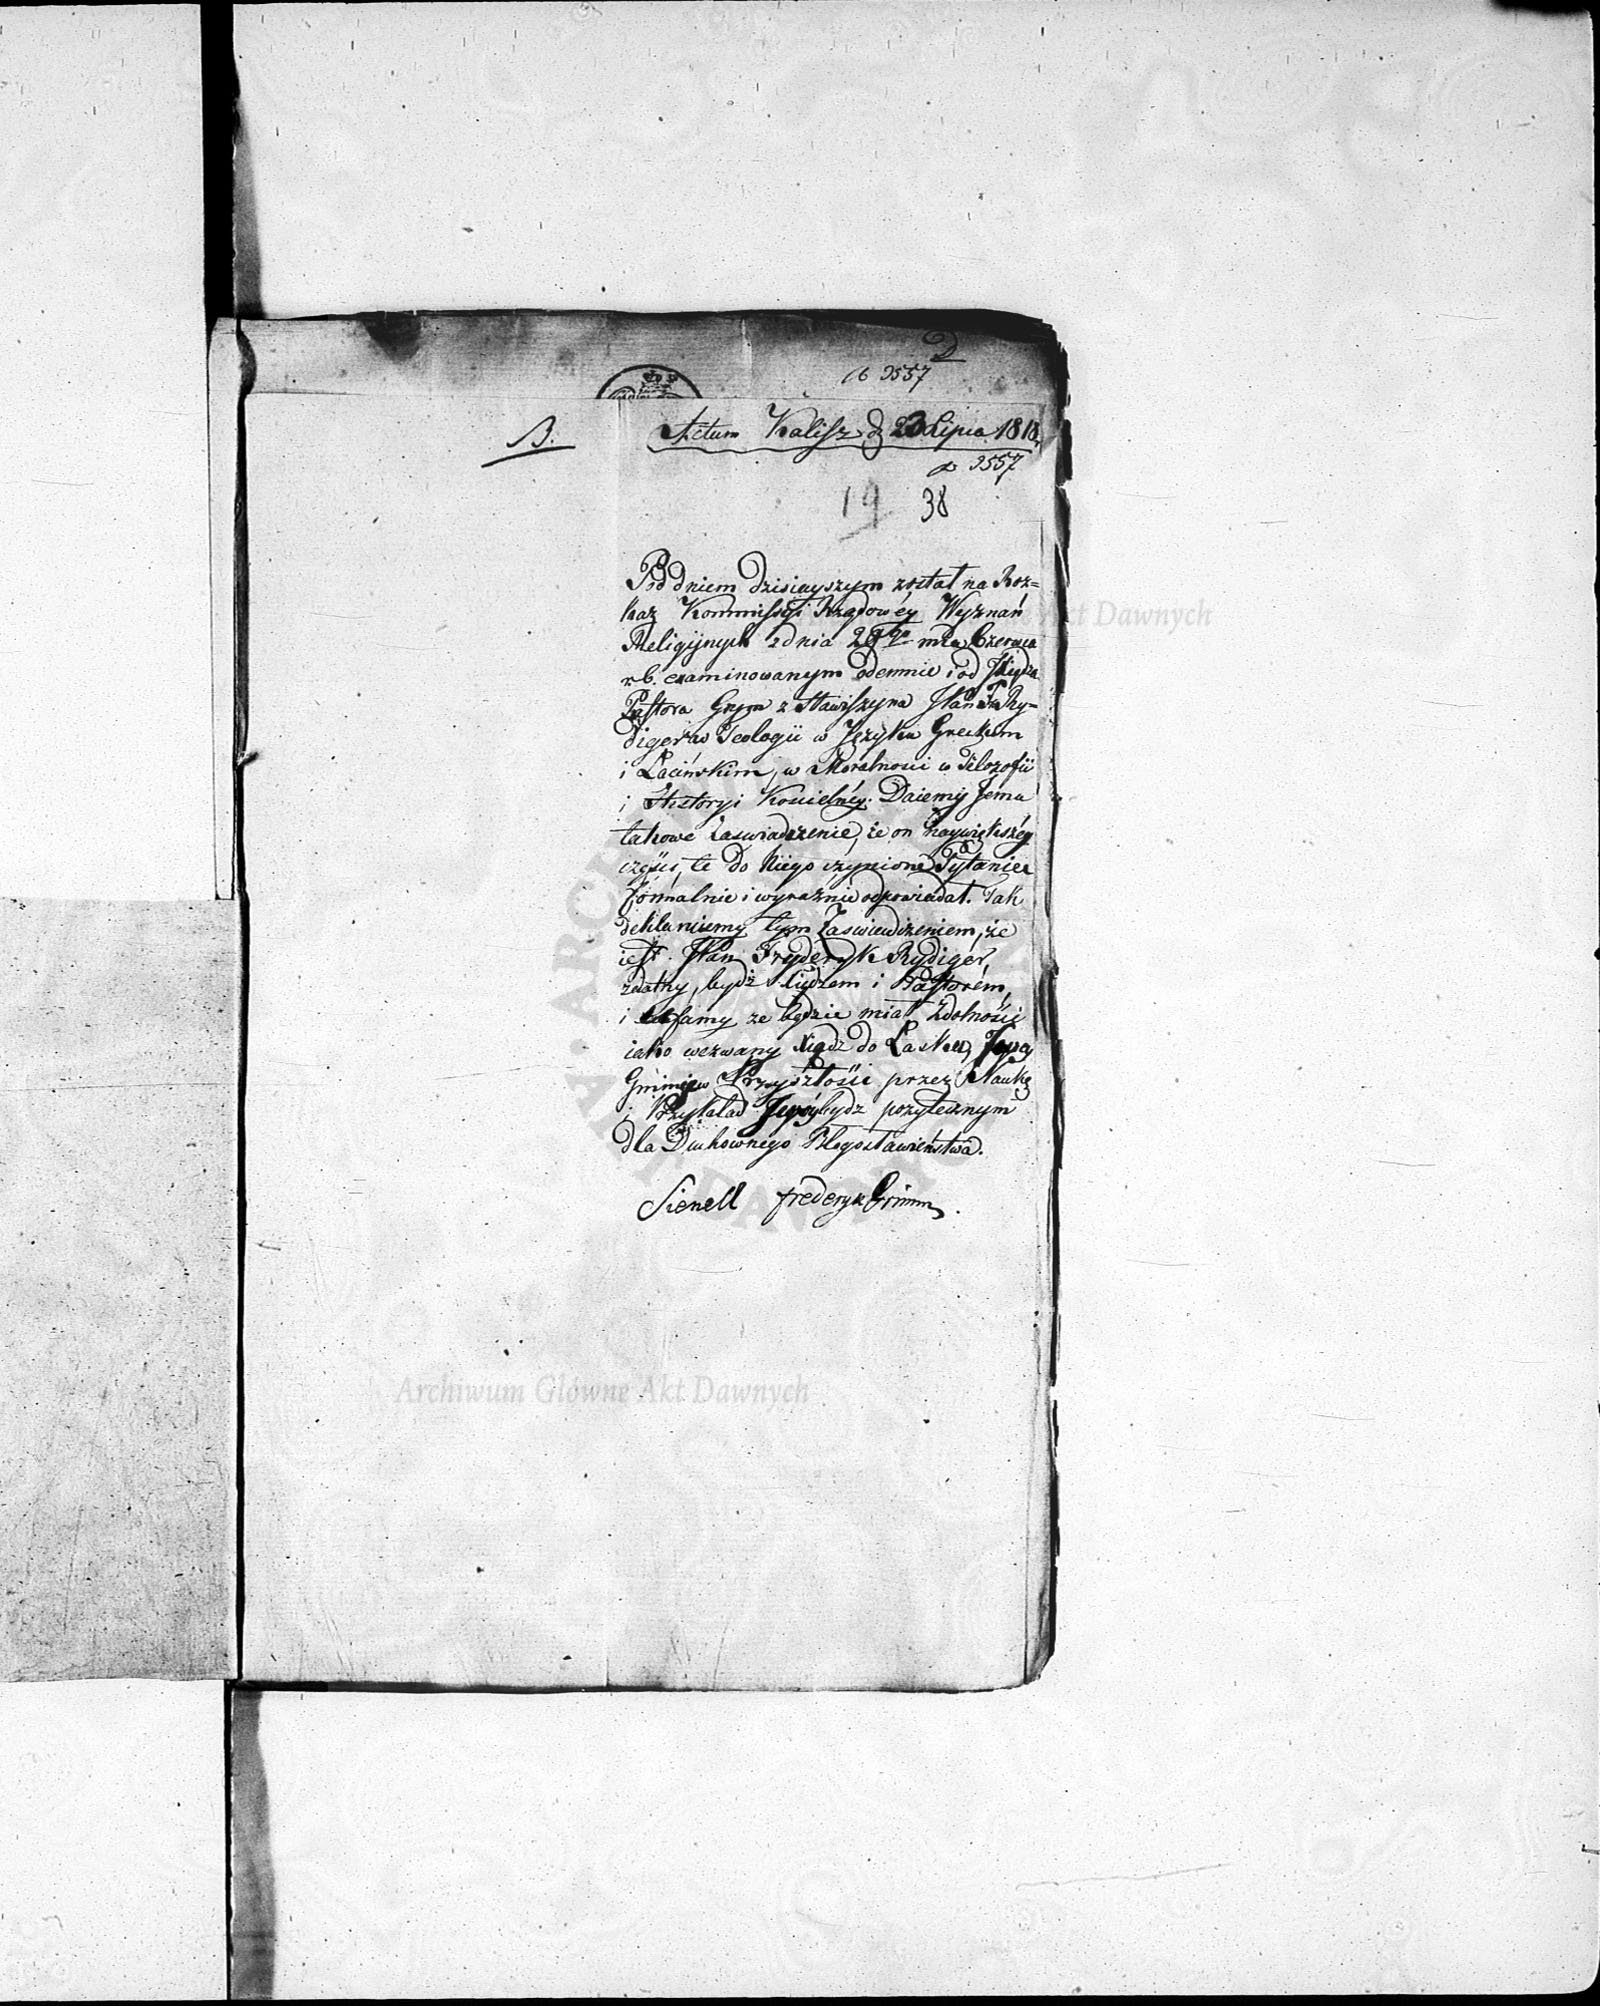 D
16 3557
B.
Actum Kalisz d 23 Lipca 1818
3557
19 38
Pod dniem dzisieyszym został na Roz=
kaz Kommissyi Rządowéy Wyznań
Religijnych z dnia Czerwca
r.b. examinowanym odemnie i od Xiędza
Pastora Grym z Stawiszyna JPan Fr. Ry=
diger w Teologii w Języku Greckim
i Łacińskim, w Moralności w Filozofii
i Historyi Kościelnéy. Daiemy Jemu
takowe Zaswiadczenie, że on naywiększéy
części, te do Niego czynione Pytanie
formalnie i wyraźnie odpowiadał. Tak
deklaruiemy tym Zaswiadczeniem, że
iest JPan Fryderyk Rydiger
zdatny, bydź Xiędzem i Pastorém,
i ufamy ze będzie miał Zdolności
iako wezwany Xiądz do Łasku,
Gminie w Przyszłości przez Naukę
i Przykład bydz pożytecznym
dla Duchownégo Błogosławieństwa.
Sienell frederyk Grimm.
Archiwum Główne Akt Dawnych
Akt Dawnych